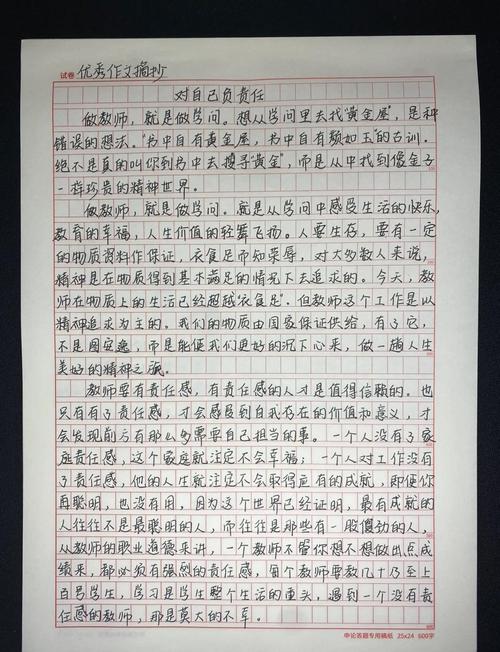 试卷 优秀作文摘抄
对自己负责任
做教师，就是做学问。想从学问里去找"黄金屋"，是种
错误的想法。"书中自有黄金屋，书中自有颜如玉"的古训。
绝不是真的叫你到书中去搜寻"黄金"，而是从中找到像金子
一样珍贵的精神世界。
做教师，就是做学问。就是从学问中感受生活的快乐，
教育的幸福，人生价值的轻舞飞扬。人要生存，要有一定
的物质资料作保证，衣食足而知荣辱，对大多数人来说，
精神是在物质得到基本满足的情况下去追求的。今天，教
师在物质上的生活已经超越"衣食足"，但教师这个工作是以
精神追求为主的。我们的物质由国家保证供给，有了它，
不是图安逸，而是能使我们更好的沉下心来，做一趟人生
美好的精神之旅。
教师要有责任感，有责任感的人才是值得信赖的。也
只有有了责任感，才会感受到自我存在的价值和意义，才
会发现前方有那么多需要自己担当的事。一个人没有了家
庭责任感，这个家庭就注定不会幸福；一个人对工作没有
了责任感，他的人生就注定不会取得应有的成就，即使你
再聪明，也没有用，因为这个世界已经证明，最有成就的
人往往不是最聪明的人，而往往是那些有一股傻劲的人，
从教师的职业道德来讲，一个教师不管你想不想做出点成
绩来，都必须有强烈的责任感，每个教师要教几十乃至上
百号学生，学习是学生整个生活的重头，遇到一个没有责
任感的教师，那是莫大的不幸。
申论答题专用稿纸 25x24 600字